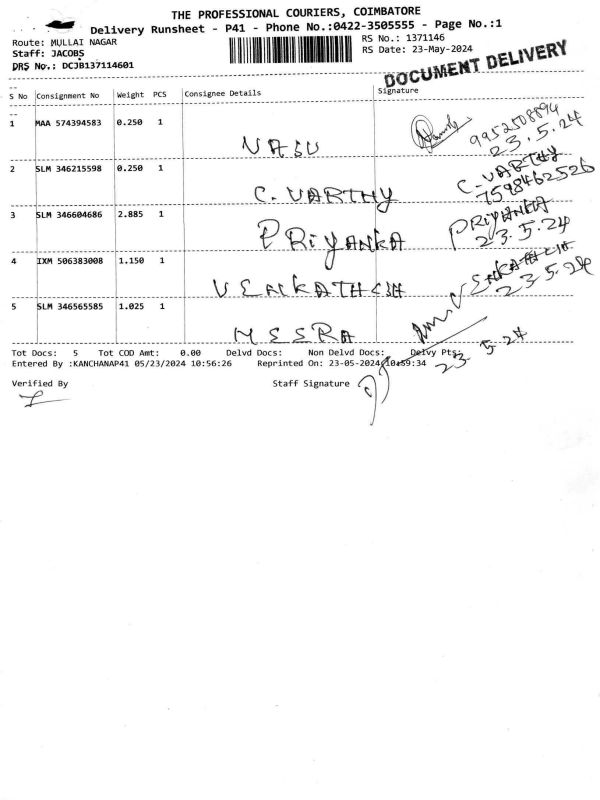 THE PROFESSIONAL COURIERS, COIMBATORE
Delivery Runsheet - P41 - Phone No.:0422-3505555 - Page No.:1
Route: MULLAI NAGAR
RS No.: 1371146
Staff: JACOBS
RS Date: 23-May-2024
DRS No.: DCJB137114601
DOCUMENT DELIVERY
S No Consignment No Weight PCS Consignee Details Signature
1 MAA 574394583 0.250 1
9952508894
23.5.24
VASU
2 SLM 346215598 0.250 1
C. VARTHY
7598462526
C. VARTHY
3 SLM 346604686 2.885 1
PRIYANKA
23.5.24
PRIYANKA
4 IXM 506383008 1.150 1
23.5.24
VENKATHESH
5 SLM 346565585 1.025 1
MESRA
23.5.24
Tot Docs: 5 Tot COD Amt: 0.00 Delvd Docs: Non Delvd Docs: Delvy Pts:
Entered By :KANCHANAP41 05/23/2024 10:56:26 Reprinted On: 23-05-2024 10:59:34
Verified By Staff Signature